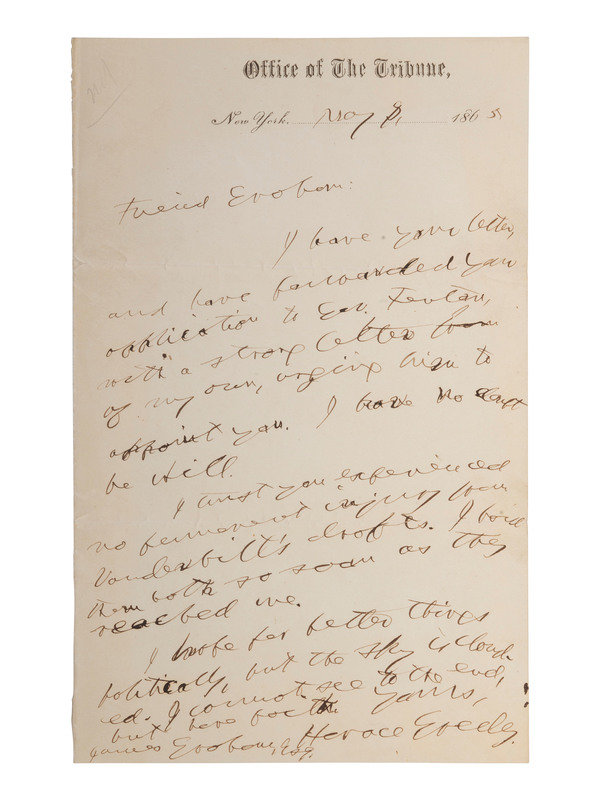 Office of The Tribune,
New York, May 8, 1865
Friend Graham:
I have your letter,
and have forwarded your
application to Gov. Fenton,
with a strong letter
of my own, urging him to
appoint you. I have no doubt
he will.
I trust you experienced
no permanent injury from
Vanderbilt's drafts. I paid
them both so soon as they
reached me.
I hope for better things
politically, but the sky is cloud-
ed. I cannot see to the end,
but have faith. Yours,
Horace Greeley.
James Graham, Esq.